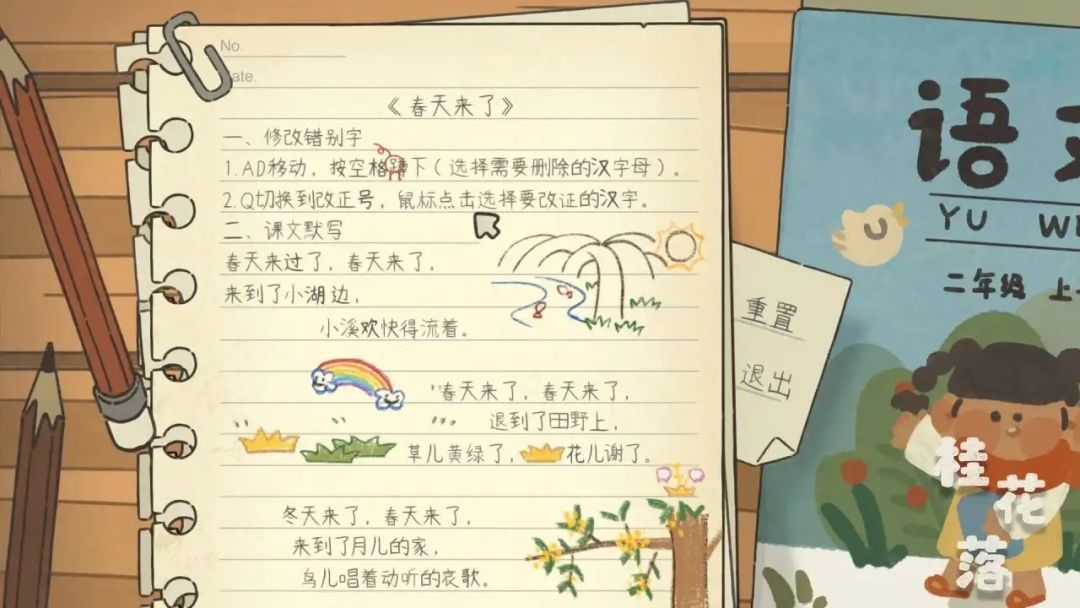 No
ate.
《春天来了》
一、修改错别字
1.AD移动，按空格蹲下（选择需要删除的汉字母）。
2.Q切换到改正号，鼠标点击选择要改证的汉字。
二、课文默写
春天来过了，春天来了，
来到了小湖边，
小溪欢快得流着。
春天来了，春天来了，
退到了田野上，
草儿黄绿了，花儿谢了。
冬天来了，春天来了，
来到了月儿的家，
鸟儿唱着动听的哀歌。
重置
退出
语
YU
二年级 上
桂花落